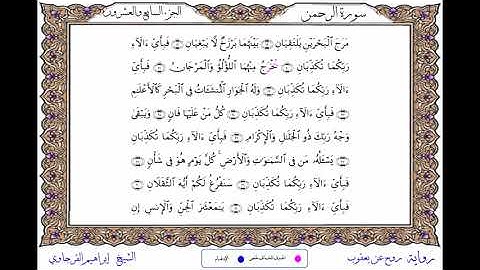 سورة الرحمن الجزء السابع والعشرون
مَرَجَ ٱلْبَحْرَيْنِ يَلْتَقِيَانِ ۝ بَيْنَهُمَا بَرْزَخٌ لَّا يَبْغِيَانِ ۝ فَبِأَيِّ ءَالَآءِ
رَبِّكُمَا تُكَذِّبَانِ ۝ يُخْرَجُ مِنْهُمَا ٱللُّؤْلُؤُ وَٱلْمَرْجَانُ ۝ فَبِأَيِّ ءَالَآءِ
رَبِّكُمَا تُكَذِّبَانِ ۝ وَلَهُ ٱلْجَوَارِ ٱلْمُنشَـَٔاتُ فِي ٱلْبَحْرِ كَٱلْأَعْلَٰمِ
۝ فَبِأَيِّ ءَالَآءِ رَبِّكُمَا تُكَذِّبَانِ ۝ كُلُّ مَنْ عَلَيْهَا فَانٍ ۝ وَيَبْقَىٰ
وَجْهُ رَبِّكَ ذُو ٱلْجَلَٰلِ وَٱلْإِكْرَامِ ۝ فَبِأَيِّ ءَالَآءِ رَبِّكُمَا تُكَذِّبَانِ
۝ يَسْـَٔلُهُۥ مَن فِي ٱلسَّمَٰوَٰتِ وَٱلْأَرْضِ ۚ كُلَّ يَوْمٍ هُوَ فِي شَأْنٍ ۝
فَبِأَيِّ ءَالَآءِ رَبِّكُمَا تُكَذِّبَانِ ۝ سَنَفْرُغُ لَكُمْ أَيُّهَ ٱلثَّقَلَانِ ۝
فَبِأَيِّ ءَالَآءِ رَبِّكُمَا تُكَذِّبَانِ ۝ يَٰمَعْشَرَ ٱلْجِنِّ وَٱلْإِنسِ إِنِ
رواية روح عن يعقوب الشيخ إبراهيم الفرجاوي